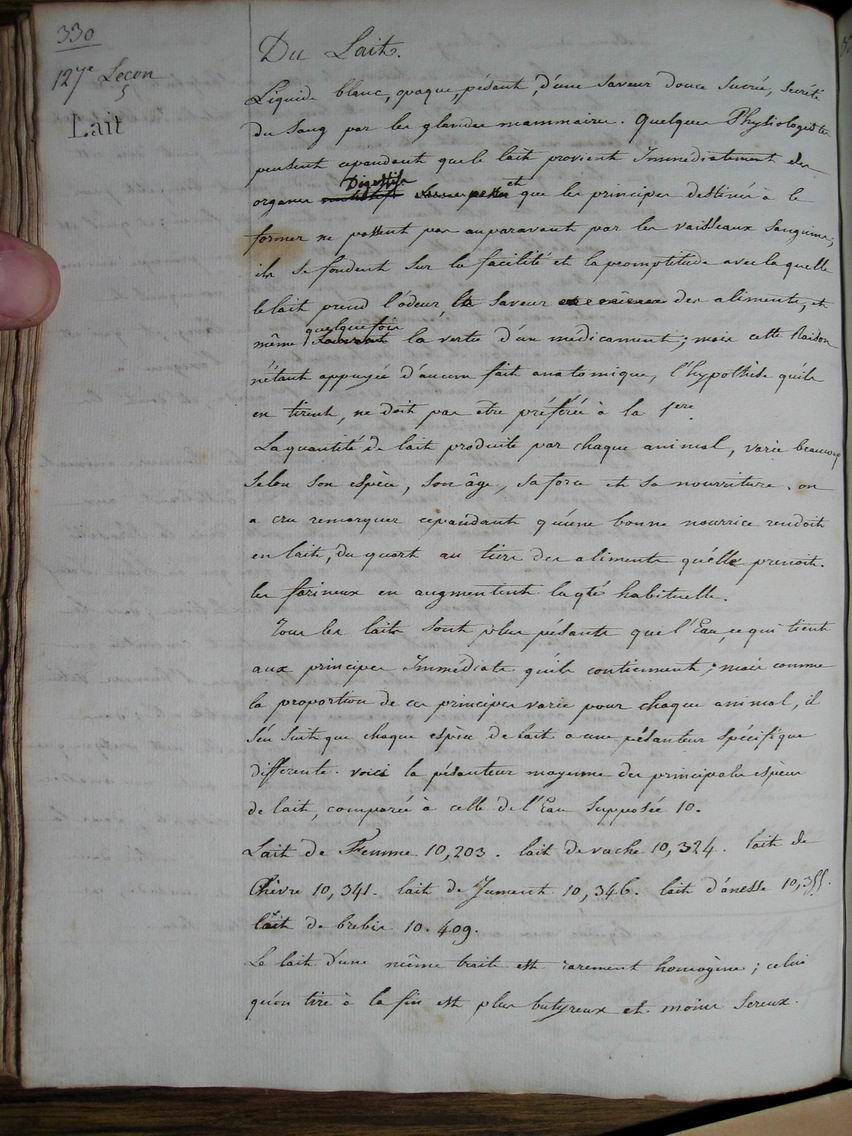 330
127e Leçon
5
Lait
Du Lait.
Liquide blanc, opaque, pésant, d'une saveur douce sucrée, secrété
du Sang par les glandes mammaires. Quelques Physiologistes
pensent cependant que le lait provient Immediatement des
organes Digestifs et que les principes destinés à le
former ne passent pas auparavant par les vaisseaux Sanguins;
ils se fondent sur la facilité et la promptitude avec laquelle
le lait prend l'odeur, la saveur des aliments, et
même quelquefois la vertu d'un médicament; mais cette Raison
n'étant appuyée d'aucun fait anatomique, l'hypothèse qu'ils
en tirent, ne doit pas etre préférée à la 1ere.
La quantité de lait produite par chaque animal, varie beaucoup
Selon son espèce, son âge, sa force et sa nourriture. on
a cru remarquer cependant qu'une bonne nourrice rendoit
en lait, du quart au tiers des aliments qu'elle prenoit.
les farineux en augmentent la qté habituelle.
Tous les laits sont plus pésants que l'Eau, ce qui tient
aux principes Immédiats qu'ils contiennent; mais comme
la proportion de ces principes varie pour chaque animal, il
s'en suit que chaque espèce de lait a une pésanteur spécifique
differente. voici la pésanteur moyenne des principales espèces
de lait, comparée à celle de l'Eau Supposée 10.
Lait de Femme 10,203. lait de vache 10,324. lait de
Chèvre 10,341. lait de Jument 10,346. lait d'anesse 10,355.
lait de brebis 10.409.
Le lait d'une même traite est rarement homogène; celui
qu'on tire à la fin est plus butyreux et moins Sereux.